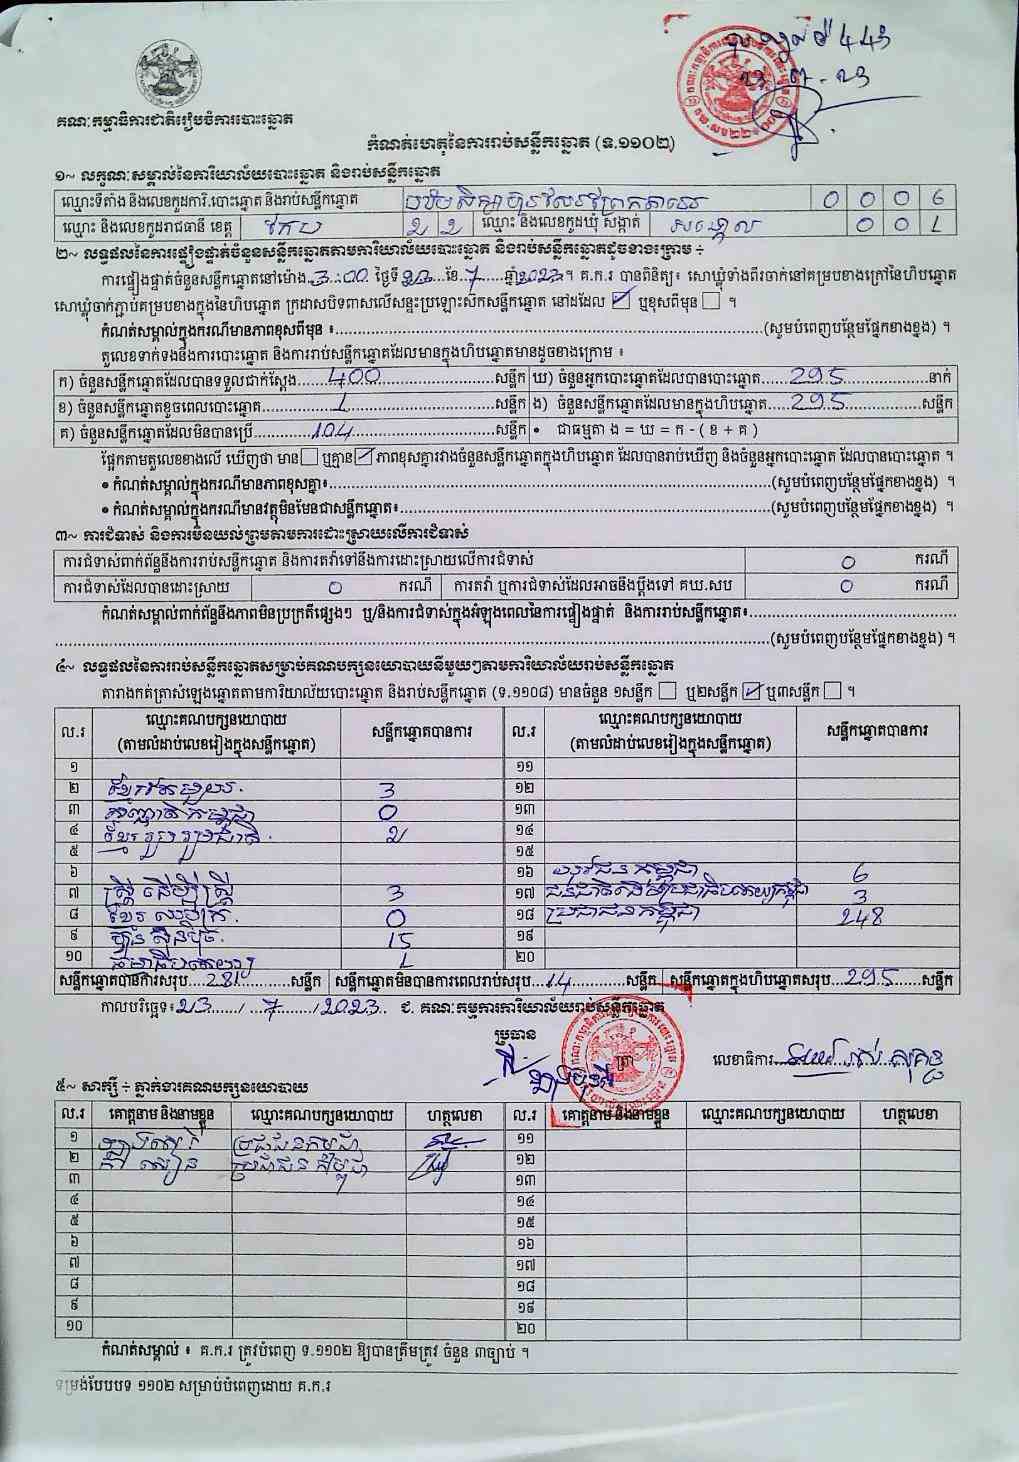 គណៈកម្មាធិការជាតិរៀបចំការបោះឆ្នោត
កំណត់ហេតុនៃការរាប់សន្លឹកឆ្នោត (ទ.១១០២)
១~ លក្ខណៈសម្គាល់នៃការិយាល័យបោះឆ្នោត និងរាប់សន្លឹកឆ្នោត
ឈ្មោះទីតាំង និងលេខកូដការិ.បោះឆ្នោត និងរាប់សន្លឹកឆ្នោត 0 0 0 6
ឈ្មោះ និងលេខកូដរាជធានី ខេត្ត កែប 2 2 ឈ្មោះ និងលេខកូដឃុំ សង្កាត់ 0 0 1
២~ លទ្ធផលនៃការផ្ទៀងផ្ទាត់ចំនួនសន្លឹកឆ្នោតតាមការិយាល័យបោះឆ្នោត និងរាប់សន្លឹកឆ្នោតដូចខាងក្រោម ÷
ការផ្ទៀងផ្ទាត់ចំនួនសន្លឹកឆ្នោតនៅម៉ោង 3:00 ថ្ងៃទី 23 ខែ 7 ឆ្នាំ 2023។ គ.ក.រ បានពិនិត្យ៖ សោឃ្លុំទាំងពីរចាក់នៅគម្របខាងក្រៅនៃហិបឆ្នោត
សោឃ្លុំចាក់ភ្ជាប់គម្របខាងក្នុងនៃហិបឆ្នោត ក្រដាសបិទពាសលើសន្ទះប្រឡោះសិកសន្លឹកឆ្នោត នៅដដែល ☑ ឬខុសពីមុន ☐ ។
កំណត់សម្គាល់ក្នុងករណីមានភាពខុសពីមុន ៖ (សូមបំពេញបន្ថែមផ្នែកខាងខ្នង) ។
តួលេខទាក់ទងនឹងការបោះឆ្នោត និងការរាប់សន្លឹកឆ្នោតដែលមានក្នុងហិបឆ្នោតមានដូចខាងក្រោម ៖
ក) ចំនួនសន្លឹកឆ្នោតដែលបានទទួលជាក់ស្ដែង 400 សន្លឹក ឃ) ចំនួនអ្នកបោះឆ្នោតដែលបានបោះឆ្នោត 295 នាក់
ខ) ចំនួនសន្លឹកឆ្នោតខូចពេលបោះឆ្នោត 1 សន្លឹក ង) ចំនួនសន្លឹកឆ្នោតដែលមានក្នុងហិបឆ្នោត 295 សន្លឹក
គ) ចំនួនសន្លឹកឆ្នោតដែលមិនបានប្រើ 104 សន្លឹក • ជាធម្មតា ង = ឃ = ក - ( ខ + គ )
ផ្អែកតាមតួលេខខាងលើ ឃើញថា មាន ☐ ឬគ្មាន ☑ ភាពខុសគ្នារវាងចំនួនសន្លឹកឆ្នោតក្នុងហិបឆ្នោត ដែលបានរាប់ឃើញ និងចំនួនអ្នកបោះឆ្នោត ដែលបានបោះឆ្នោត ។
• កំណត់សម្គាល់ក្នុងករណីមានភាពខុសគ្នា៖ (សូមបំពេញបន្ថែមផ្នែកខាងខ្នង) ។
• កំណត់សម្គាល់ក្នុងករណីមានវត្ថុមិនមែនជាសន្លឹកឆ្នោត៖ (សូមបំពេញបន្ថែមផ្នែកខាងខ្នង) ។
៣~ ការជំទាស់ និងការមិនយល់ព្រមតាមការដោះស្រាយលើការជំទាស់
ការជំទាស់ពាក់ព័ន្ធនឹងការរាប់សន្លឹកឆ្នោត និងការតវ៉ាទៅនឹងការដោះស្រាយលើការជំទាស់ 0 ករណី
ការជំទាស់ដែលបានដោះស្រាយ 0 ករណី ការតវ៉ា ឬការជំទាស់ដែលអាចនឹងប្ដឹងទៅ គឃ.សប 0 ករណី
កំណត់សម្គាល់ពាក់ព័ន្ធនឹងភាពមិនប្រក្រតីផ្សេងៗ ឬ/និងការជំទាស់ក្នុងអំឡុងពេលនៃការផ្ទៀងផ្ទាត់ និងការរាប់សន្លឹកឆ្នោត៖
(សូមបំពេញបន្ថែមផ្នែកខាងខ្នង) ។
៤~ លទ្ធផលនៃការរាប់សន្លឹកឆ្នោតសម្រាប់គណបក្សនយោបាយនីមួយៗតាមការិយាល័យរាប់សន្លឹកឆ្នោត
តារាងកត់ត្រាសំឡេងឆ្នោតតាមការិយាល័យបោះឆ្នោត និងរាប់សន្លឹកឆ្នោត (ទ.១១០៨) មានចំនួន ១សន្លឹក ☐ ឬ២សន្លឹក ☑ ឬ៣សន្លឹក ☐ ។
ល.រ ឈ្មោះគណបក្សនយោបាយ (តាមលំដាប់លេខរៀងក្នុងសន្លឹកឆ្នោត) សន្លឹកឆ្នោតបានការ ល.រ ឈ្មោះគណបក្សនយោបាយ (តាមលំដាប់លេខរៀងក្នុងសន្លឹកឆ្នោត) សន្លឹកឆ្នោតបានការ
១ ១១
២ 3 ១២
៣ កម្ពុជា 0 ១៣
៤ ខ្មែររួបរួមជាតិ 2 ១៤
៥ ១៥
៦ ១៦ យុវជនកម្ពុជា 6
៧ ស្ត្រីដើម្បីស្ត្រី 3 ១៧ 3
៨ ខ្មែរ 0 ១៨ ប្រជាជនកម្ពុជា 248
៩ ហ្វ៊ុនស៊ិនប៉ិច 15 ១៩
១០ 1 ២០
សន្លឹកឆ្នោតបានការសរុប 281 សន្លឹក សន្លឹកឆ្នោតមិនបានការពេលរាប់សរុប 14 សន្លឹក សន្លឹកឆ្នោតក្នុងហិបឆ្នោតសរុប 295 សន្លឹក
កាលបរិច្ឆេទ៖ 23 / 7 / 2023 ជ. គណៈកម្មការការិយាល័យរាប់សន្លឹកឆ្នោត
ប្រធាន
ត្រា លេខាធិការ
៥~ សាក្សី ÷ ភ្នាក់ងារគណបក្សនយោបាយ
ល.រ គោត្តនាម និងនាមខ្លួន ឈ្មោះគណបក្សនយោបាយ ហត្ថលេខា ល.រ គោត្តនាម និងនាមខ្លួន ឈ្មោះគណបក្សនយោបាយ ហត្ថលេខា
១ ប្រជាជនកម្ពុជា ១១
២ ប្រជាជនកម្ពុជា ១២
៣ ១៣
៤ ១៤
៥ ១៥
៦ ១៦
៧ ១៧
៨ ១៨
៩ ១៩
១០ ២០
កំណត់សម្គាល់ ៖ គ.ក.រ ត្រូវបំពេញ ទ.១១០២ ឱ្យបានត្រឹមត្រូវ ចំនួន ៣ច្បាប់ ។
ទម្រង់បែបបទ ១១០២ សម្រាប់បំពេញដោយ គ.ក.រ